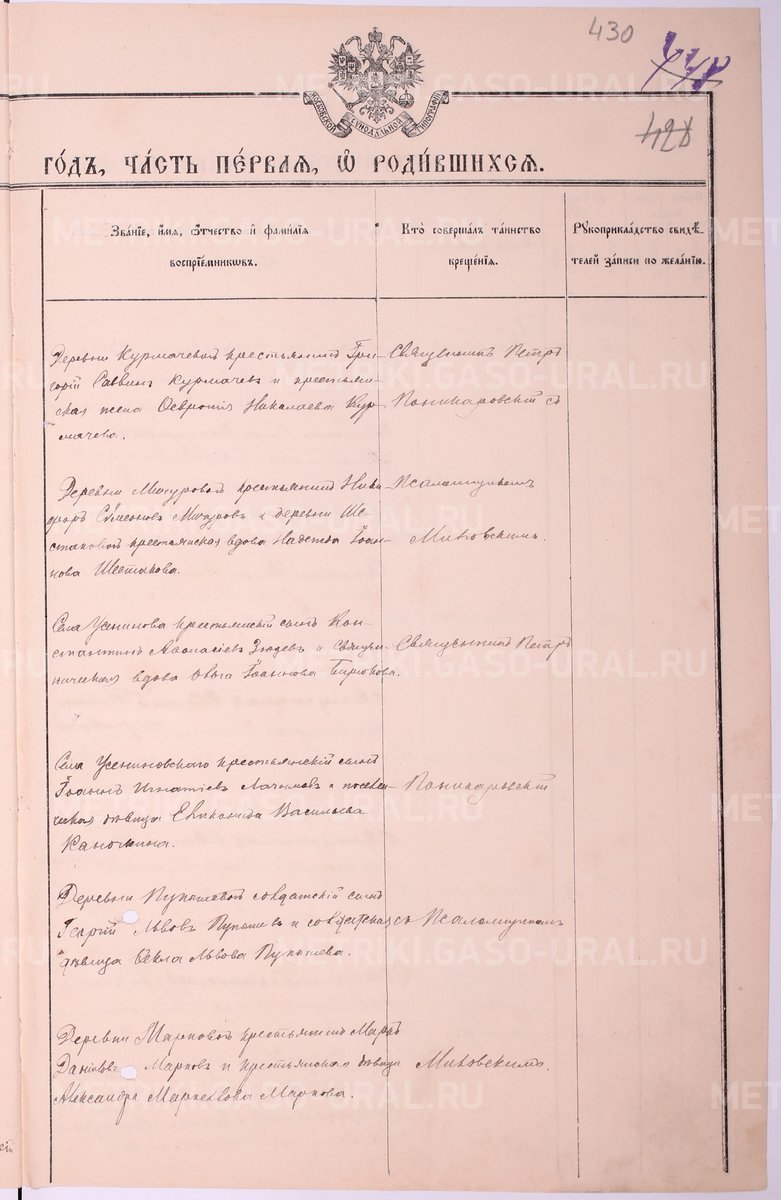 430
428
МОСКОВСКОЙ СУНОДАЛЬНОЙ ТИПОГРАФІИ
ГОДЪ, ЧАСТЬ ПЕРВАЯ, Ѡ РОДИВШИХСЯ.
Званіе, имя, отчество и фамилія воспріемниковъ.
Кто совершалъ таинство крещенія.
Рукоприкладство свидѣтелей записи по желанію.
Деревни Курмачевой крестьянинъ Гри-
горій Саввинъ Курмачевъ и крестьян-
ская жена Февронія Николаева Кур-
мачева.
Священникъ Петръ
Поникаровскій съ
Деревни Мичуровой крестьянинъ Ники-
форъ Сѵмеоновъ Мичуровъ и деревни Ше-
стаковой крестьянская вдова Надежда Іоан-
нова Шестакова.
Псаломщикомъ
Села Усенинова крестьянскій сынъ Кон-
стантинъ Аѳанасіевъ Зюдевъ и Священ-
ническая вдова Ольга Іоаннова Бирюкова.
Священникъ Петръ
Села Усениновскаго крестьянскій сынъ
Іоаннъ Игнатіевъ и
дѣвица Васильева
Поникаровскій
Деревни солдатскій сынъ
Георгій Львовъ и солдатская
дѣвица Ѳекла Львова
съ Псаломщикомъ
Деревни Марковой крестьянинъ Маркъ
Даніиловъ Марковъ и крестьянская дѣвица
Александра Маркеллова Маркова.